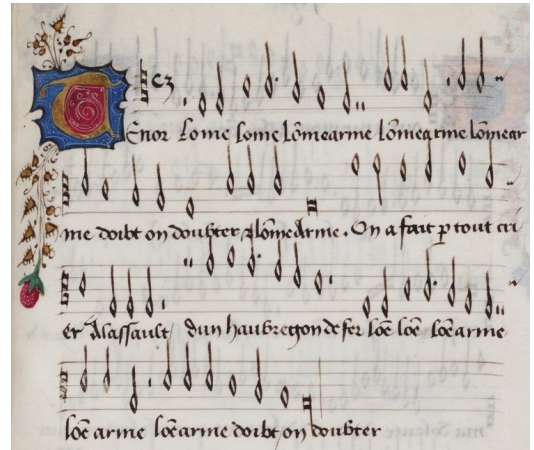 Tenor Lome lome lomearme lomearme lomear
me doibt on doubter lomearme. On a fait p tout cri
er Alassault dun haubregon de fer loe loe loe arme
loe arme loe arme doibt on doubter